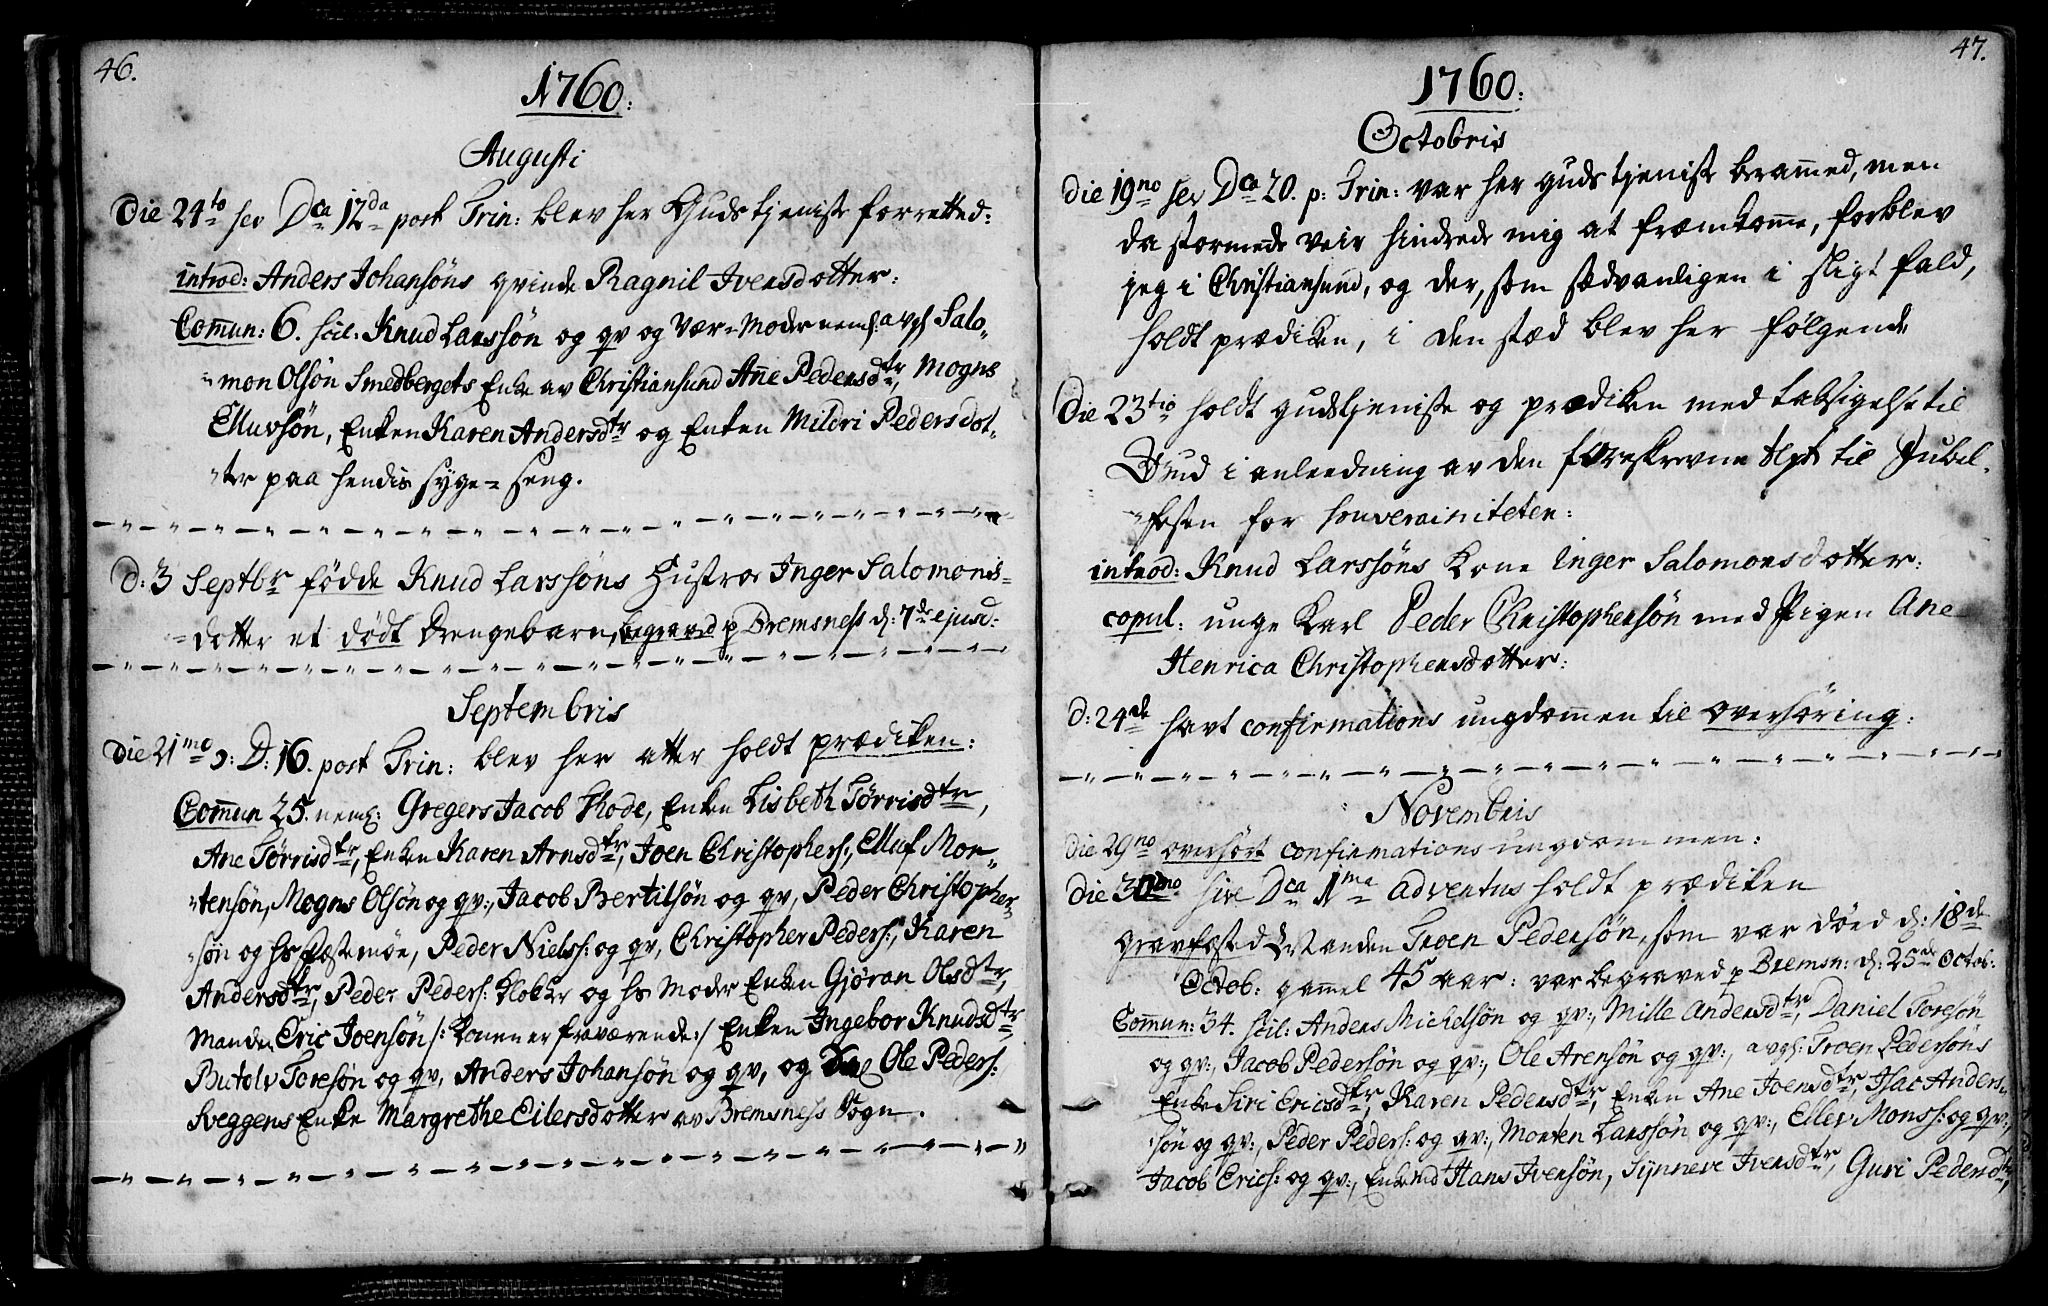 46.
1760.
Augusti
Die 24to sev Dca 12da post Trin: blev her Gudstjeniste forretted:
introd: Anders Johansøns qvinde Ragnil Iversdotter:
Com̄un: 6. scil: Knud Larssøn og qv og Vær-Moder neml: avgl Salo-
mon Olsøn Smedbergets Enke av Christiansund An̄e Pedersdtr, Mogns
Elluvsøn, Enken Karen Andersdtr og Enken Mildri Pedersdot-
ter paa hendis syge-seng.
D: 3 Septbr fødde Knud Larssøns Hustroe Inger Salomons-
dotter et dødt drengebarn, begraved p Bremsness d: 7de ejusd:
Septembris
Die 21mo ɔ: D: 16. post Trin: blev her etter holdt prædiken:
Com̄un 25. neml: Gregers Jacob Thode, Enke Lisbeth Tørrisdtr,
Ane Tørrisdtr, Enken Karen Arnsdtr, Joen Christophers:, Elluf Mor-
tensøn, Mogns Olsøn og qv:, Jacob Bertilsøn og qv, Peder Christopher-
søn og hs festemøe, Peder Niels: og qv, Christopher Peders:, Karen
Andersdtr, Peder Peders: kloker og hs Moder Enken Gjøran Olsdtr,
Manden Eric Joensøn /: konen er fraværende:/ Enken Ingebor Knudsdtr
Butolv Toresøn og qv, Anders Johansøn og qv, og Ole Peders:
Sveggens Enke Margrethe Eilersdotter av Bremsness Sogn.
47.
1760.
Octobris
Die 19no sev Dca 20. p: Trin: var her gudstjeniste beram̄ed, men
da stormede veir hindrede mig at fræmkom̄e, forblev
jeg i Christiansund, og der, som sædvanligen i sligt fald,
holdt prædiken, i den stæd blev her følgende
Die 23tio holdt gudstjeniste og prædiken med taksigelse til
Gud i anleedning av den foreskrevne text til Jubel-
festen for souverainiteten:
introd: Knud Larssøns Kone Inger Salomonsdotter:
copul: unge Karl Peder Christophersøn med Pigen Ane
Henrica Christophersdotter:
d: 24de havt confirmations ungdom̄en til overhøring:
Novembris
Die 29no overhørt confirmations ungdommen:
Die 30mo sive Dca 1ma adventus holdt prædiken
gravfæsted Manden Troen Pedersøn, som var døed d: 18de
Octob: gam̄el 45 aar: var begraved p Bremsn: d: 25de Octob:
Com̄un: 34. scil: Anders Michelsøn og qv:, Mille Andersdtr, Daniel Toresøn
og qv:, Jacob Pedersøn og qv:, Ole Arensøn og qv:, avgl: Troen Pedersøns
Enke Siri Ericsdtr, Karen Pedersdtr, Enken Ane Joensdtr, Isac Anders-
søn og qv:, Peder Peders: og qv:, Morten Larssøn og qv:, Ellev Mons: og qv:,
Jacob Erics: og qv:, Enkemd Hans Iversøn, Synneve Iversdtr, Guri Pedersdtr,